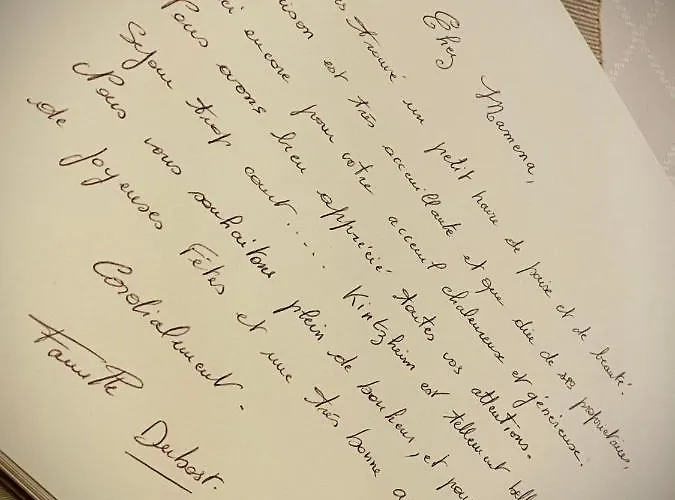 Chez Mamena,
trouvé un petit havre de paix et de beauté.
est très accueillante et que dire de ses propriétaires,
encore pour votre accueil chaleureux et généreuse.
avons bien apprécié toutes vos attentions.
Séjour trop court..... Kintzheim est tellement bell
Nous vous souhaitons plein de bonheur, et pou
de joyeuses Fêtes et une très bonne a
Cordialement.
Famille Dubost.